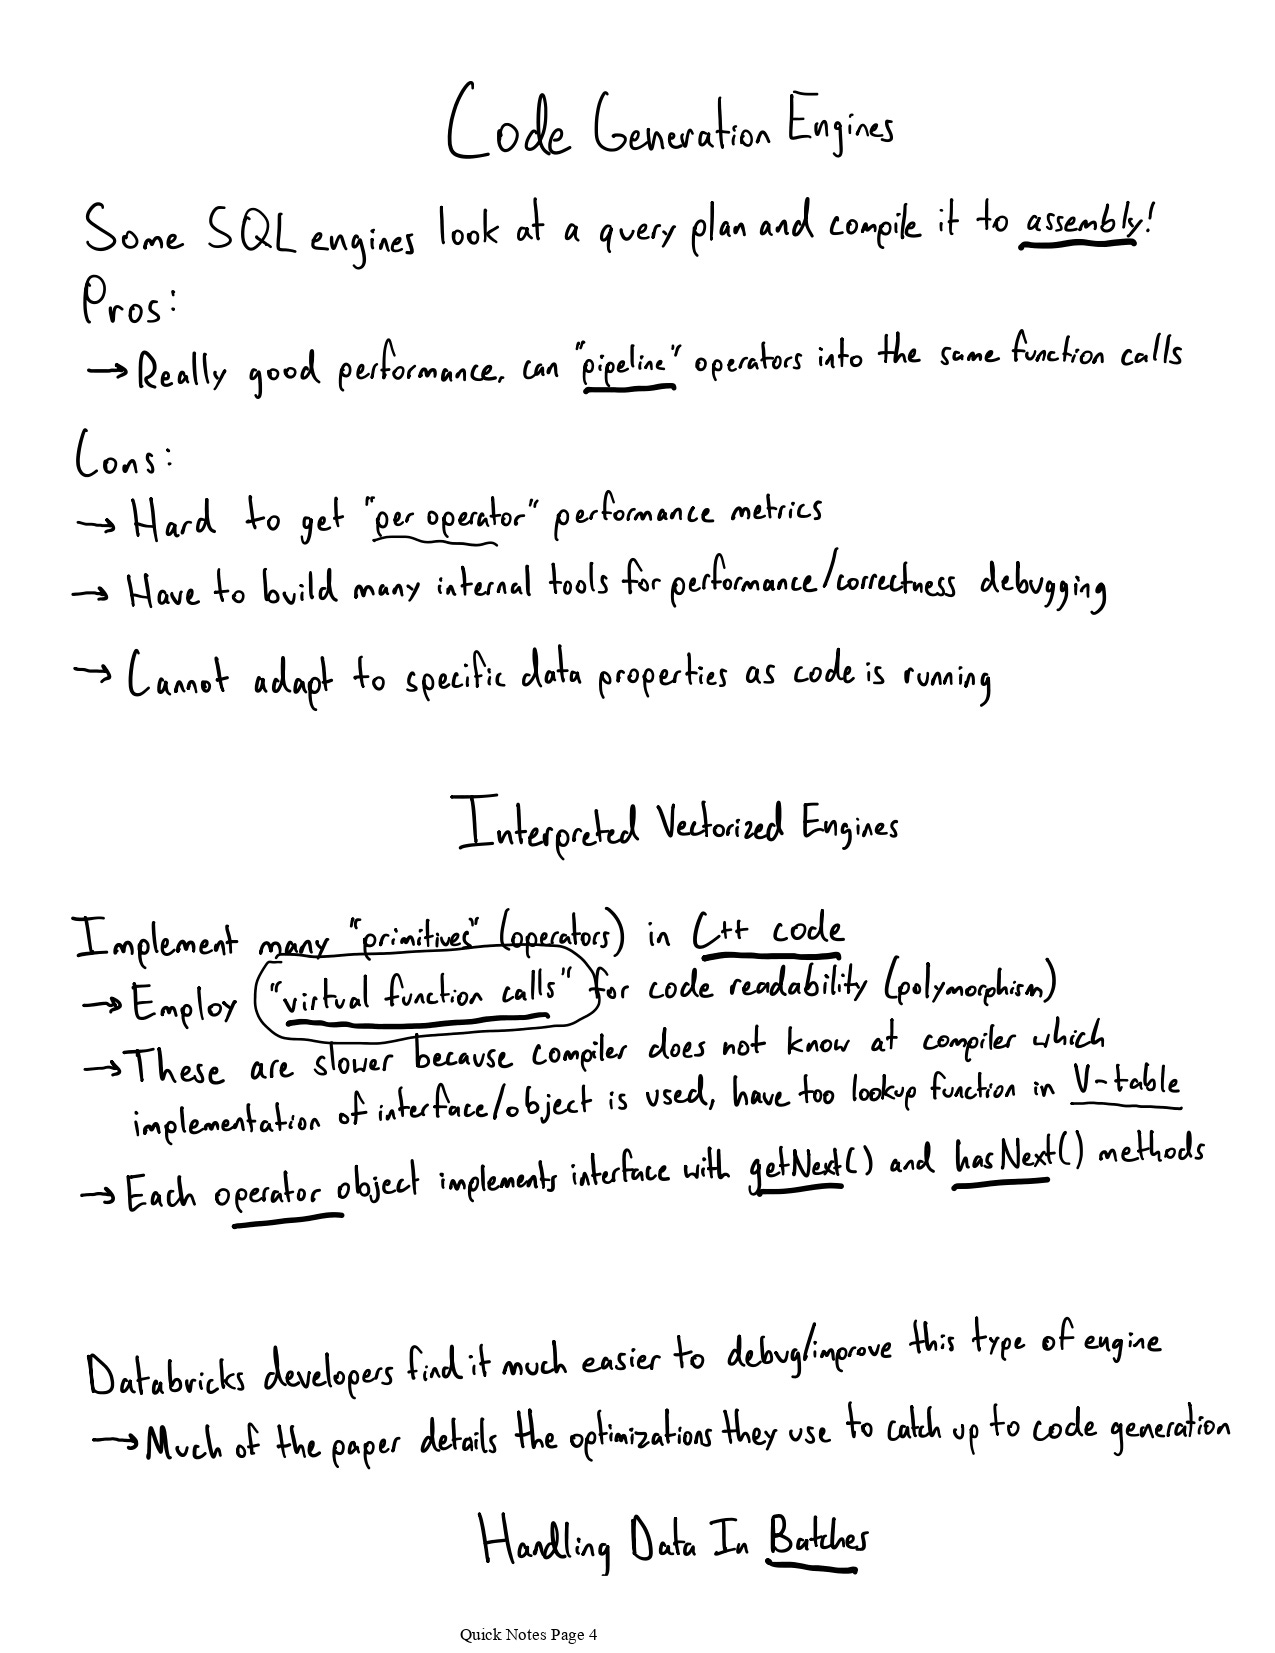 Code Generation Engines
Some SQL engines look at a query plan and compile it to assembly!
Pros:
→ Really good performance, can "pipeline" operators into the same function calls
Cons:
→ Hard to get "per operator" performance metrics
→ Have to build many internal tools for performance/correctness debugging
→ Cannot adapt to specific data properties as code is running
Interpreted Vectorized Engines
Implement many "primitives" (operators) in C++ code
→ Employ "virtual function calls" for code readability (polymorphism)
→ These are slower because compiler does not know at compiler which
implementation of interface/object is used, have too lookup function in V-table
→ Each operator object implements interface with getNext() and hasNext() methods
Databricks developers find it much easier to debug/improve this type of engine
→ Much of the paper details the optimizations they use to catch up to code generation
Handling Data In Batches
Quick Notes Page 4